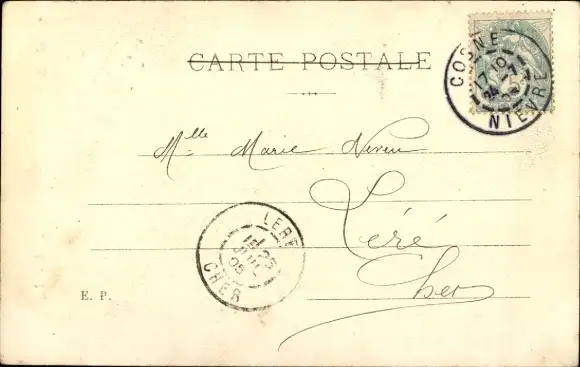 CARTE POSTALE
COSNE
NIEVRE
Mlle Marie Neveu
Léré
Cher
LERE
CHER
E. P.